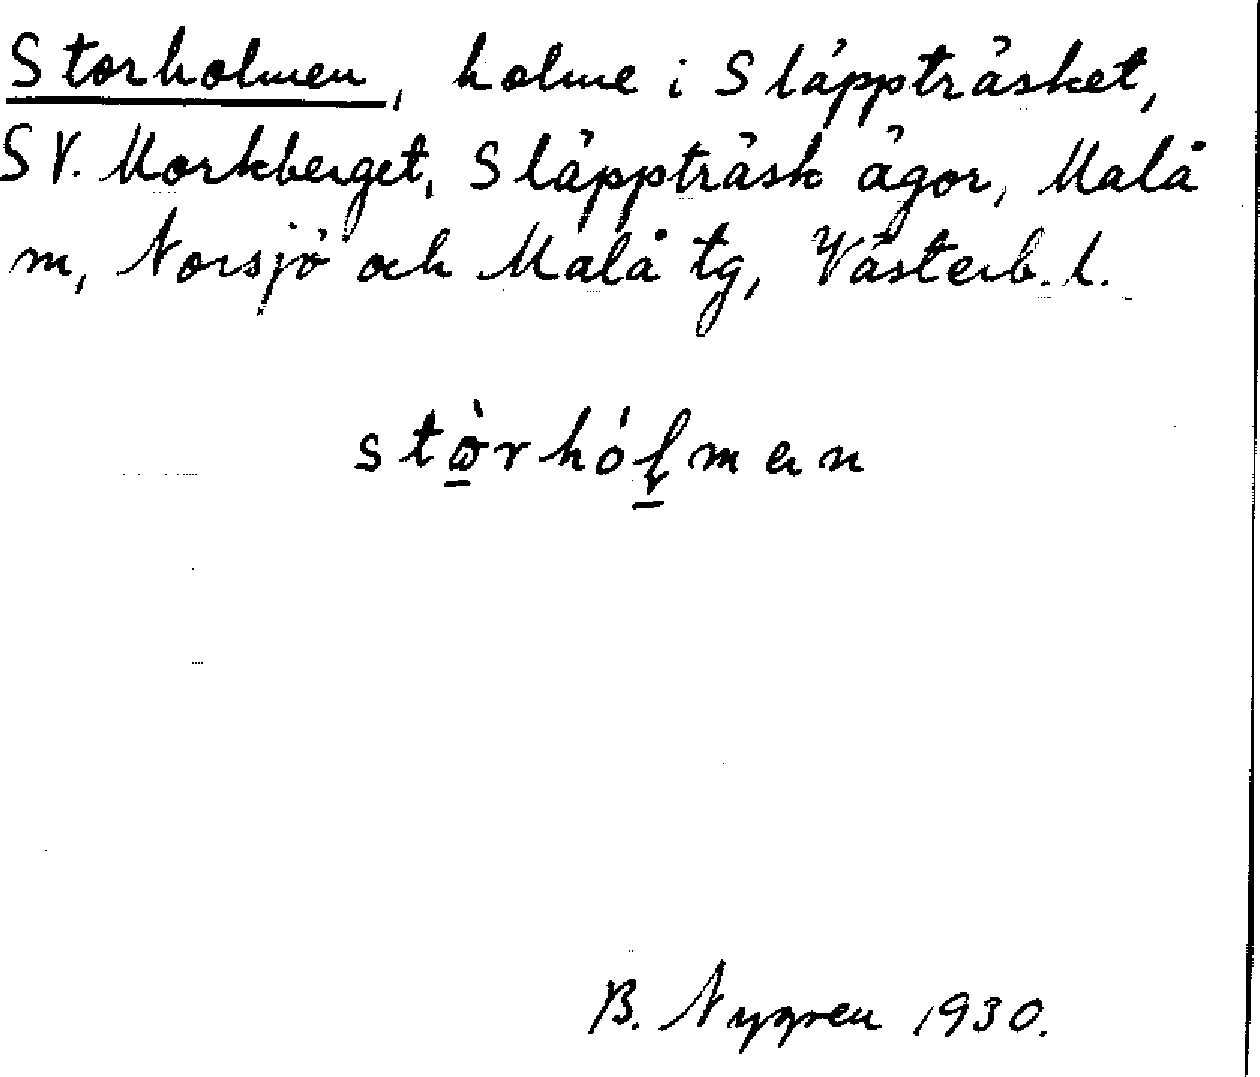 Storholmen, holme i Släppträsket,
SV. Morkberget, Släppträsk ägor, Malå
m, Norsjö och Malå tg, Västerb. l.
stòrhółmen
B. Nygren 1930.